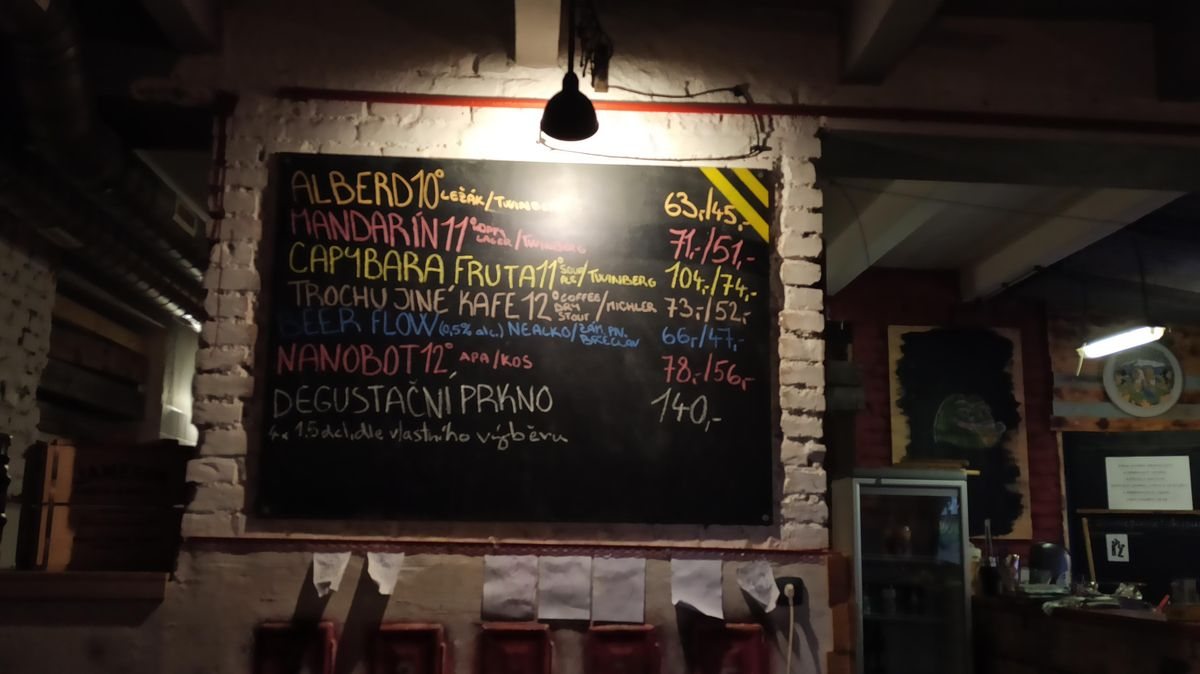 ALBERD 10° LEŽÁK/TWINBERG 63,-/45,-
MANDARÍN 11° HOPPY LAGER/TWINBERG 71,-/51,-
CAPYBARA FRUTA 11° SOUR ALE/TWINBERG 104,-/74,-
TROCHU JINÉ KAFE 12° COFFEE DRY STOUT/MICHLER 73,-/52,-
BEER FLOW (0,5% alc.) NEALKO/ZÁM. PIV. BŘECLAV 66,-/47,-
NANOBOT 12° APA/KOS 78,-/56,-
DEGUSTAČNÍ PRKNO 140,-
4x 1.5dcl, dle vlastního výběru